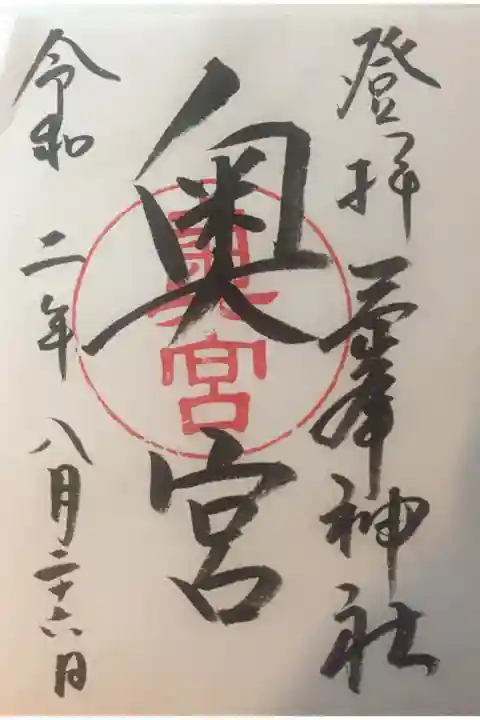 登拝 三峯神社
奥宮
奥宮
令和二年八月二十六日